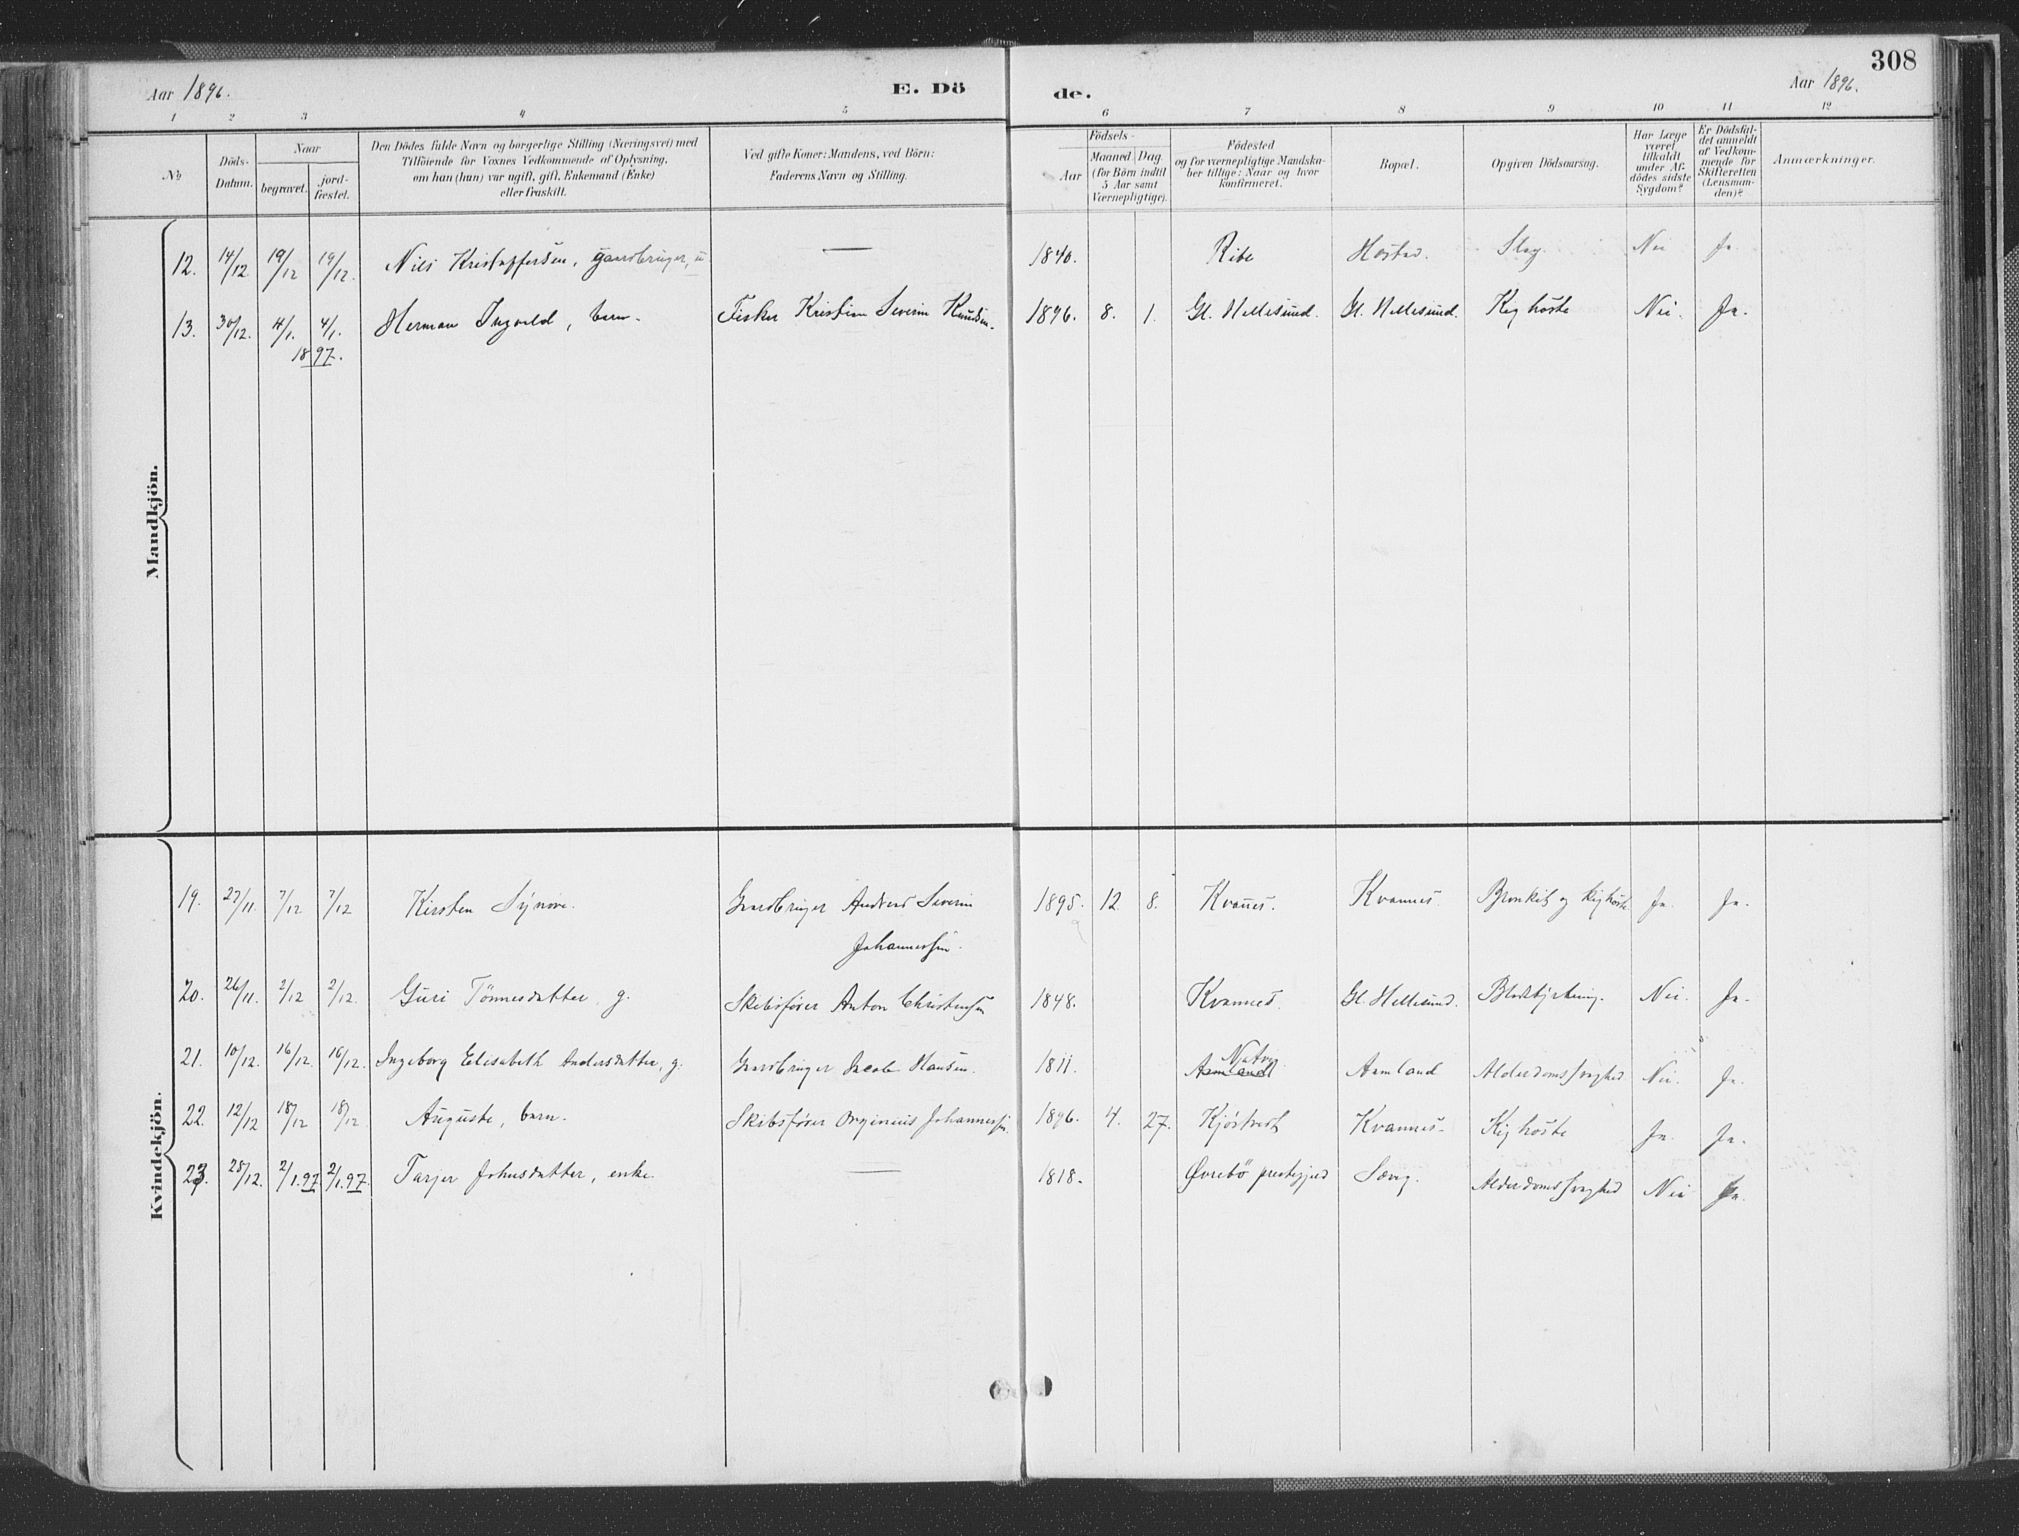 308
Aar 1896.
E. Dö
de.
Aar 1896.
1 2 3 4 5 6 7 8 9 10 11 12
No
Döds-
Datum.
Naar
begravet.
jord-
fæstet.
Den Dödes fulde Navn og borgerlige Stilling (Næringsvei) med
Tilföiende for Voxnes Vedkommende af Oplysning,
om han (hun) var ugift, gift, Enkemand (Enke)
eller fraskilt.
Ved gifte Koner: Mandens, ved Börn:
Faderens Navn og Stilling.
Födsels-
Aar
Maaned. Dag.
(for Börn indtil
5 Aar samt
Værnepligtige).
Födested
og for værnepligtige Mandska-
ber tillige: Naar og hvor
konfirmeret.
Bopæl.
Opgiven Dödsaarsag.
Har Læge
været
tilkaldt
under Af-
dödes sidste
Sygdom?
Er Dödsfal-
det anmeldt
af Vedkom-
mende for
Skifteretten
(Lensman-
den)?
Anmærkninger.
Mandkjön.
12. 14/12 19/12 19/12. Nils Kristoffersen, gaardbruger, u — 1840. Ribe Hostad. Slag. Nei Ja.
13. 30/12. 4/1. 4/1. Herman Ingvald, barn. Fisker Kristian Severin Knudsen. 1896. 8. 1. Gl. Hellesund. Gl. Hellesund. Kighoste Nei. Ja.
1897.
Kvindekjön.
19. 27/11. 7/12 7/12 Kirsten Synove. Gaardbruger Andreas Severin 1895. 12 8. Kvannes. Kvannes. Bronkit og kighoste. Ja. Ja.
Johannessen.
20. 26/11. 2/12 2/12. Guri Tönnesdatter, g. Skibsfører Anton Christensen 1848. Kvannes. Gl. Hellesund. Blodstyrtning. Nei. Ja.
21. 10/12. 16/12. 16/12. Ingeborg Elisabeth Andersdatter, g. Gaardbruger Jacob Hansen. 1811. Aamland Aamland Alderdomssvaghed Nei. Ja.
22. 12/12 18/12 18/12 Auguste, barn. Skibsfører Johannessen. 1896. 4. 27. Kvannes. Kighoste Ja. Ja.
23. 28/12. 2/1.97 2/1.97. Tarjer Johnsdatter, enke. — 1818. Øvrebö prestegjeld Alderdomssvaghed Nei Ja.